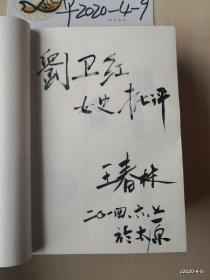 2020-4-9
劉卫红
女史批评
王春林
二〇一四.六.二
於太原
p2020-4-8